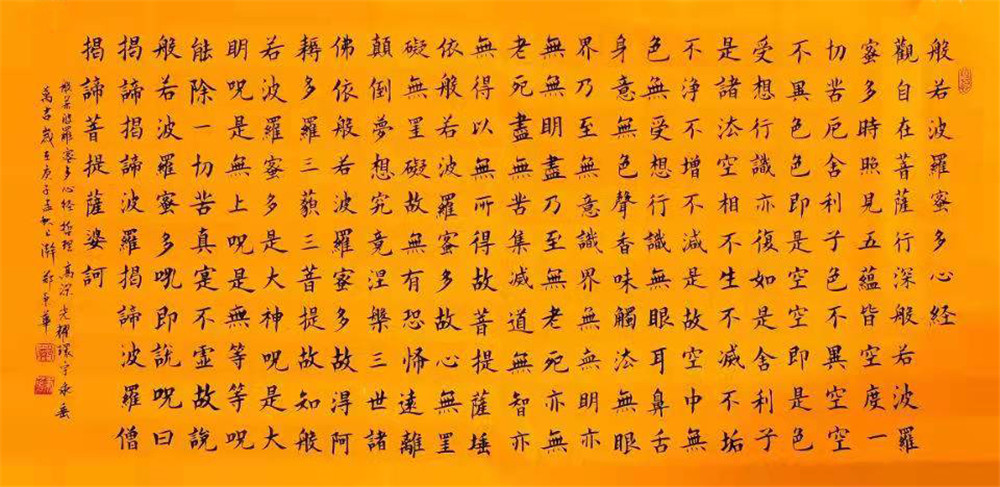 般若波羅蜜多心経
觀自在菩薩行深般若波羅
蜜多時照見五蘊皆空度一
切苦厄舍利子色不異空空
不異色色即是空空即是色
受想行識亦復如是舍利子
是諸法空相不生不滅不垢
不浄不增不減是故空中無
色無受想行識無眼耳鼻舌
身意無色聲香味觸法無眼
界乃至無意識界無無明亦
無無明盡乃至無老死亦無
老死盡無苦集滅道無智亦
無得以無所得故菩提薩埵
依般若波羅蜜多故心無罣
礙無罣礙故無有恐怖遠離
顛倒夢想究竟涅槃三世諸
佛依般若波羅蜜多故得阿
耨多羅三藐三菩提故知般
若波羅蜜多是大神呪是大
明呪是無上呪是無等等呪
能除一切苦真寔不虛故說
般若波羅蜜多呪即說呪曰
揭諦揭諦波羅揭諦波羅僧
揭諦菩提薩婆訶
般若波羅蜜多心经哲理高深光耀環宇永垂
萬古歲在庚子孟秋上澣鄭東華